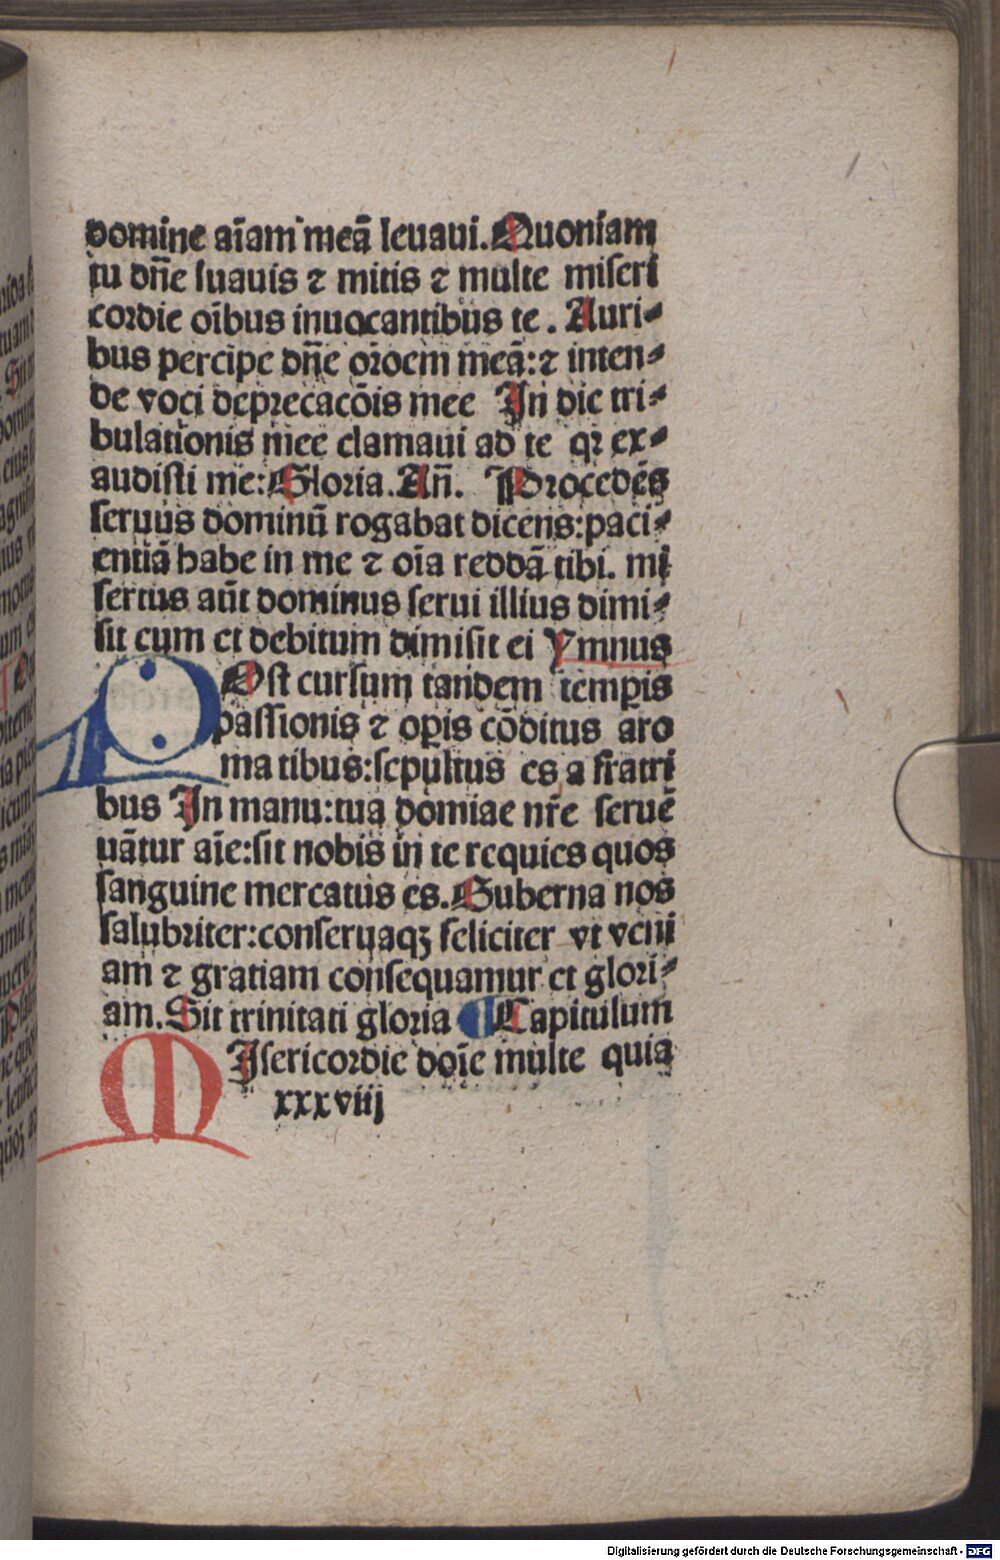 domine aīam meā leuaui. Quoniam
tu dn̄e suauis ⁊ mitis ⁊ multe miseri
cordie oībus inuocantibus te. Auri⸗
bus percipe dn̄e oīoem meā: ⁊ inten⸗
de voci deprecacōis mee In die tri⸗
bulationis mee clamaui ad te qꝛ ex⸗
audisti me: Gloria. An̄. Procedēs
seruus dominū rogabat dicens: paci⸗
entiā habe in me ⁊ oīa reddā tibi. mi
sertus aūt dominus serui illius dimi⸗
sit eum et debitum dimisit ei Ymnus
POst cursum tandem temꝑis
passionis ⁊ oꝑis cōditus aro
ma tibus: sepultus es a fratri
bus In manu: tua domiae nr̄e serue̅
uātur aīe: sit nobis in te requies quos
sanguine mercatus es. Guberna nos
salubriter: conseruaqꝫ feliciter vt veni
am ⁊ gratiam consequamur et glori⸗
am. Sit trinitati gloria ¶ Capitulum
MIsericordie doīe multe quia
xxxviij
Digitalisierung gefördert durch die Deutsche Forschungsgemeinschaft - DFG